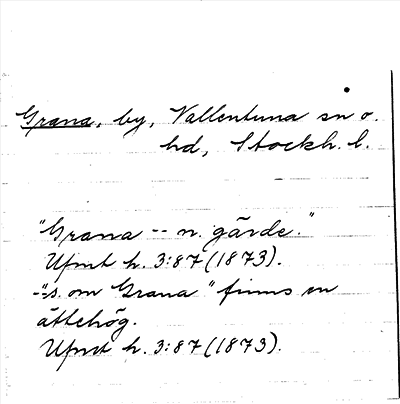 Grana, by, Vallentuna sn o.
hd, Stockh. l.
"Grana -- n. gärde."
Ufmt h. 3:87 (1873).
-"s. om Grana" finns en
ättehög.
Ufmt h. 3:87 (1873).